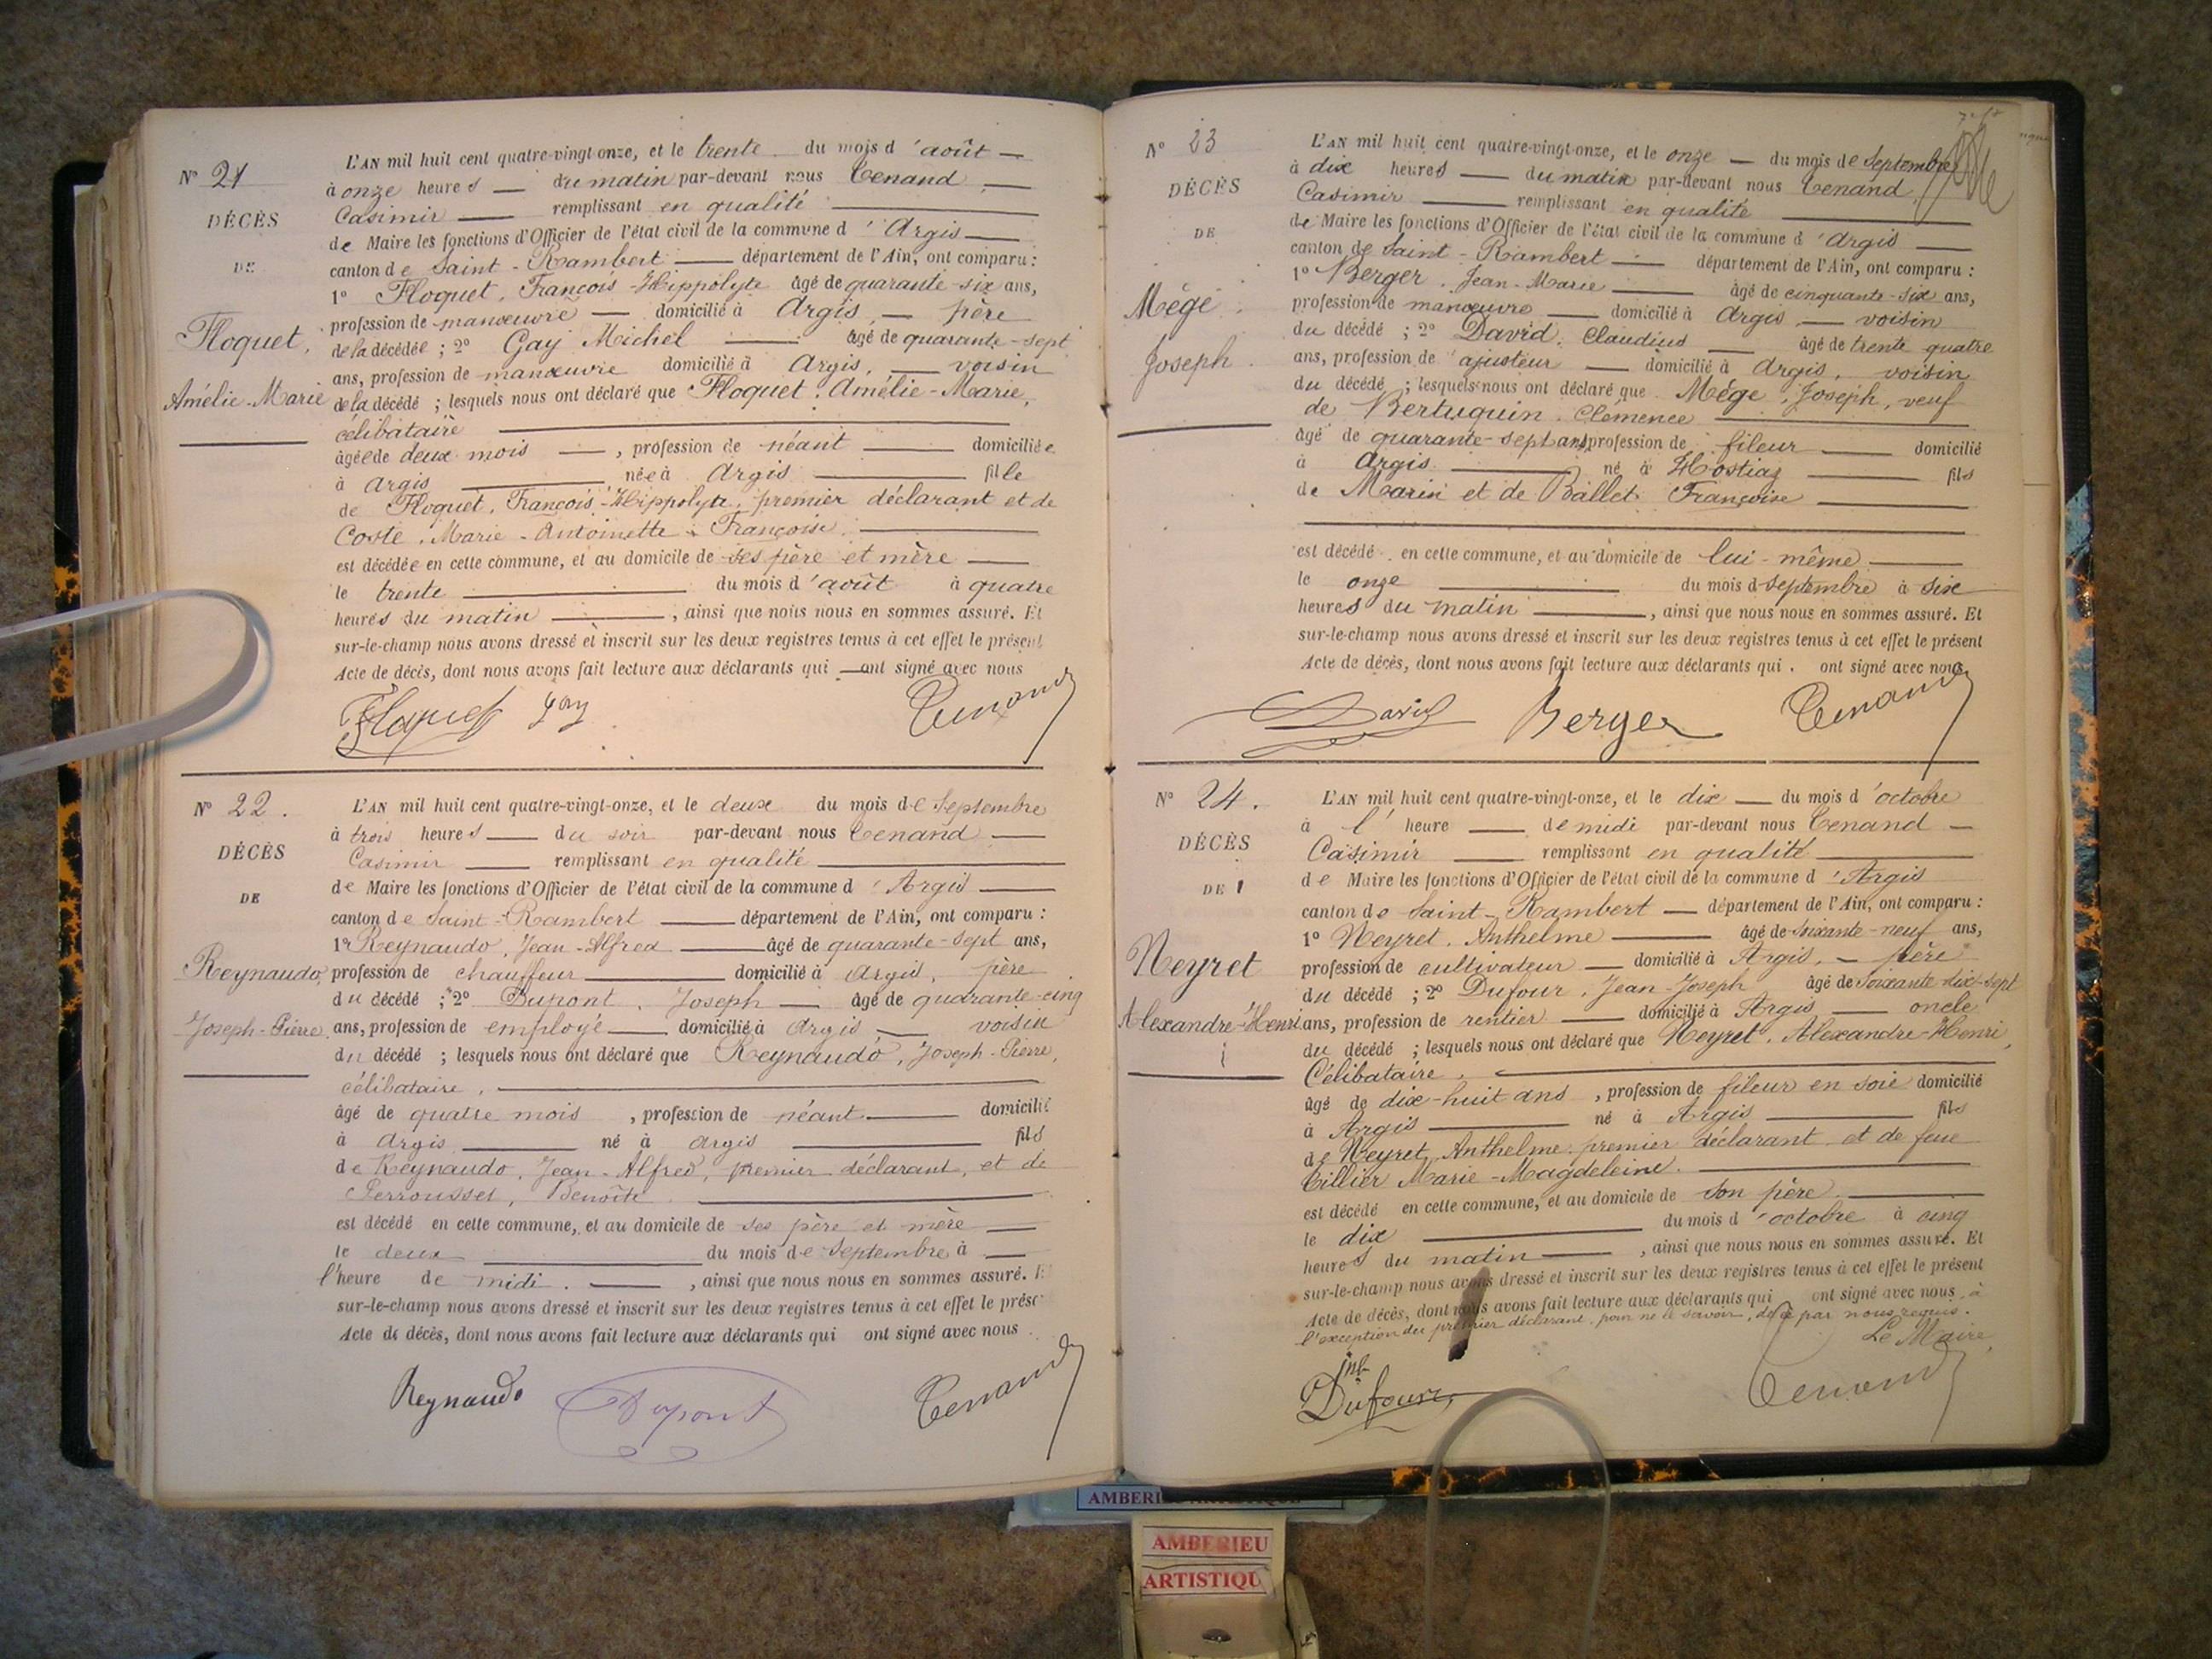 N° 21
DÉCÈS
DE
Floquet,
Amélie-Marie
L'AN mil huit cent quatre-vingt-onze, et le trente du mois d'août
à onze heures du matin par-devant nous Tenand
Casimir remplissant en qualité
de Maire les fonctions d'Officier de l'état civil de la commune d'Argis
canton de Saint-Rambert département de l'Ain, ont comparu :
1° Floquet, François-Hippolyte âgé de quarante-six ans,
profession de manœuvre domicilié à Argis, père
de la décédée ; 2° Gay Michel âgé de quarante-sept
ans, profession de manœuvre domicilié à Argis, voisin
de la décédé ; lesquels nous ont déclaré que Floquet, Amélie-Marie,
célibataire
âgée de deux mois , profession de néant domiciliée
à Argis née à Argis fille
de Floquet, François-Hippolyte, premier déclarant et de
Coste, Marie-Antoinette-Françoise,
est décédée en cette commune, et au domicile de ses père et mère
le trente du mois d'août à quatre
heures du matin , ainsi que nous nous en sommes assuré. Et
sur-le-champ nous avons dressé et inscrit sur les deux registres tenus à cet effet le présent
Acte de décès, dont nous avons fait lecture aux déclarants qui ont signé avec nous
Floquet Gay Tenand
N° 22.
DÉCÈS
DE
Reynaudo,
Joseph-Pierre
L'AN mil huit cent quatre-vingt-onze, et le deux du mois de Septembre
à trois heures du soir par-devant nous Tenand
Casimir remplissant en qualité
de Maire les fonctions d'Officier de l'état civil de la commune d'Argis
canton de Saint-Rambert département de l'Ain, ont comparu :
1° Reynaudo, Jean-Alfred âgé de quarante-sept ans,
profession de chauffeur domicilié à Argis, père
du décédé ; 2° Dupont, Joseph âgé de quarante-cinq
ans, profession de employé domicilié à Argis voisin
du décédé ; lesquels nous ont déclaré que Reynaudo, Joseph-Pierre,
célibataire,
âgé de quatre mois , profession de néant domicilié
à Argis né à Argis fils
de Reynaudo, Jean-Alfred, premier déclarant, et de
Perrousset, Benoîte
est décédé en cette commune, et au domicile de ses père et mère
le deux du mois de Septembre à
l'heure de midi. , ainsi que nous nous en sommes assuré. E
sur-le-champ nous avons dressé et inscrit sur les deux registres tenus à cet effet le prése
Acte de décès, dont nous avons fait lecture aux déclarants qui ont signé avec nous
Reynaudo Dupont Tenand
N° 23
DÉCÈS
DE
Mége
Joseph
L'AN mil huit cent quatre-vingt-onze, et le onze du mois de Septembre
à dix heures du matin par-devant nous Tenand,
Casimir remplissant en qualité
de Maire les fonctions d'Officier de l'état civil de la commune d'Argis
canton de Saint-Rambert département de l'Ain, ont comparu :
1° Berger, Jean-Marie âgé de cinquante-six ans,
profession de manœuvre domicilié à Argis, voisin
du décédé ; 2° David, Claudius âgé de trente quatre
ans, profession de ajusteur domicilié à Argis, voisin
du décédé ; lesquels nous ont déclaré que Mége, Joseph, veuf
de Bertuquin, Clémence
âgé de quarante-sept ans, profession de fileur domicilié
à Argis né à Hostiaz fils
de Marin et de Ballet Françoise
est décédé en cette commune, et au domicile de lui-même
le onze du mois de septembre à six
heures du matin , ainsi que nous nous en sommes assuré. Et
sur-le-champ nous avons dressé et inscrit sur les deux registres tenus à cet effet le présent
Acte de décès, dont nous avons fait lecture aux déclarants qui ont signé avec nous
David Berger Tenand
N° 24.
DÉCÈS
DE
Neyret
Alexandre-Henri
L'AN mil huit cent quatre-vingt-onze, et le dix du mois d'octobre
à l'heure de midi par-devant nous Tenand
Casimir remplissant en qualité
de Maire les fonctions d'Officier de l'état civil de la commune d'Argis
canton de Saint-Rambert département de l'Ain, ont comparu :
1° Neyret, Anthelme âgé de soixante-neuf ans,
profession de cultivateur domicilié à Argis, père
du décédé ; 2° Dufour, Jean-Joseph âgé de soixante dix-sept
ans, profession de rentier domicilié à Argis oncle
du décédé ; lesquels nous ont déclaré que Neyret, Alexandre-Henri,
Célibataire,
âgé de dix-huit ans , profession de fileur en soie domicilié
à Argis né à Argis fils
de Neyret, Anthelme, premier déclarant et de feue
Tillier Marie-Magdeleine.
est décédé en cette commune, et au domicile de son père
le dix du mois d'octobre à cinq
heures du matin , ainsi que nous nous en sommes assuré. Et
sur-le-champ nous avons dressé et inscrit sur les deux registres tenus à cet effet le présent
Acte de décès, dont nous avons fait lecture aux déclarants qui ont signé avec nous, à
l'exception du premier déclarant, pour ne le savoir, de ce par nous requis.
Le Maire,
Dufour Tenand
AMBERIEU
ARTISTIQU